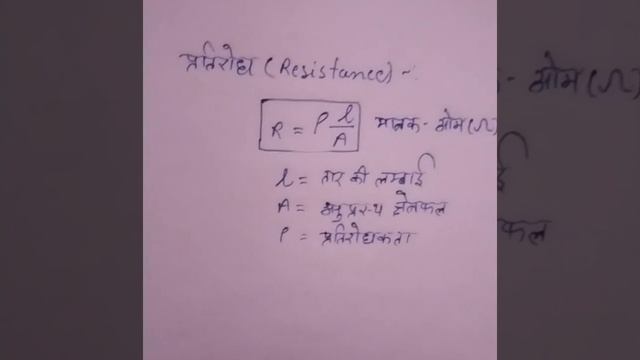 प्रतिरोध (Resistance) -:
R = ρ l/A मात्रक - ओम (Ω)
l = तार की लम्बाई
A = अनुप्रस्थ क्षेत्रफल
ρ = प्रतिरोधकता